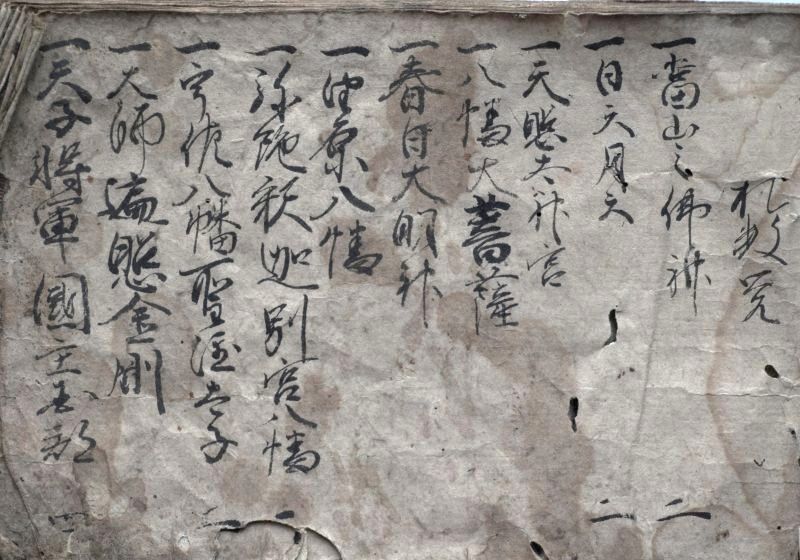 札数覚
一當山之佛神 二
一日天月天 二
一天照太神宮
一八幡大菩薩
一春日大明神
一
原八幡
一弥陀釈迦別宮八幡 一
一宇佐八幡聖
太子 二
一大師遍照金剛
一天子将軍國主
部 四